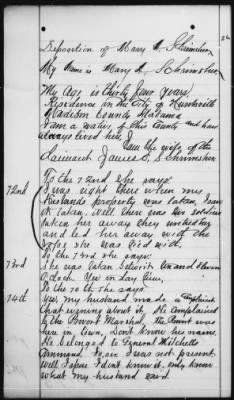 Deposition of Mary A. Shrimsher
My Name is Mary A. Shrimsher
My Age is thirty four years
Residence in the City of Huntsville
Madison County Alabama
I am a native of this County and have
always lived here. I am the wife of the
Claimant James S. Shrimsher
To the 72nd she says
72nd I was right there when my
Husbands property was taken, I saw
it taken, well there was two soldiers
taken her away they untied her
and led her away with the
rope she was tied with.
To the 73rd she says.
73rd She was taken between ten and eleven
O clock Yes in day time,
To the 74th she says
74th Yes my husband made a Complaint
that evening about it. He complained
to the Provost Marshal, the Provost was
here in town, Dont know his name,
He belonged to General Mitchells
Command I was not present
well I dont know it, only know
what my husband said.